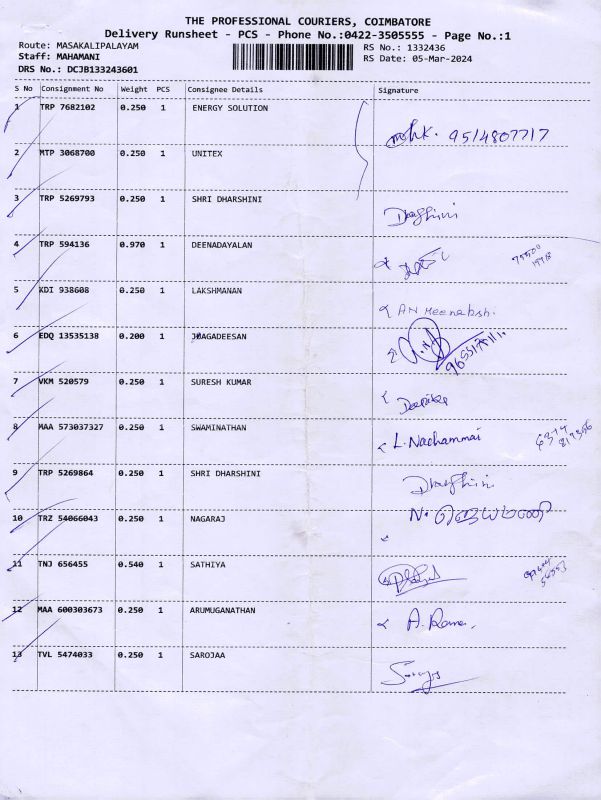 THE PROFESSIONAL COURIERS, COIMBATORE
Delivery Runsheet - PCS - Phone No.:0422-3505555 - Page No.:1
Route: MASAKALIPALAYAM RS No.: 1332436
Staff: MAHAMANI RS Date: 05-Mar-2024
DRS No.: DCJB133243601
S No Consignment No Weight PCS Consignee Details Signature
1 TRP 7682102 0.250 1 ENERGY SOLUTION
9514807717
2 MTP 3068700 0.250 1 UNITEX
3 TRP 5269793 0.250 1 SHRI DHARSHINI
4 TRP 594136 0.970 1 DEENADAYALAN
5 KDI 938608 0.250 1 LAKSHMANAN
AN Meenaksh.
6 EDQ 13535138 0.200 1 JAGADEESAN
7 VKM 520579 0.250 1 SURESH KUMAR
Deepika
8 MAA 573037327 0.250 1 SWAMINATHAN
L. Nachammai
9 TRP 5269864 0.250 1 SHRI DHARSHINI
10 TRZ 54066043 0.250 1 NAGARAJ
N. ஜெயமணி
11 TNJ 656455 0.540 1 SATHIYA
12 MAA 600303673 0.250 1 ARUMUGANATHAN
A. Rama.
13 TVL 5474033 0.250 1 SAROJAA